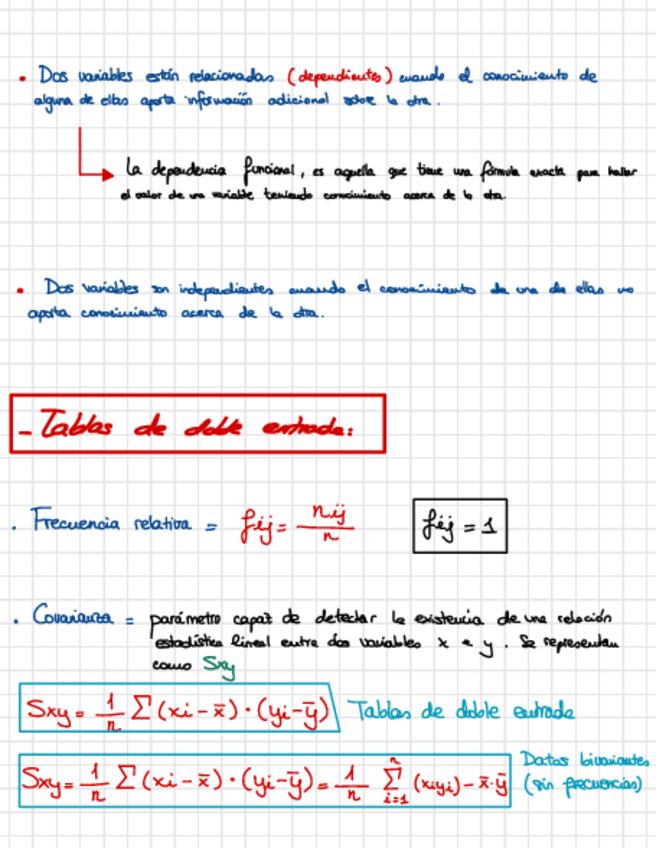 • Dos variables están relacionadas (dependientes) cuando el conocimiento de
alguna de ellas aporta información adicional sobre la otra.
La dependencia funcional, es aquella que tiene una fórmula exacta para hallar
el valor de una variable teniendo conocimiento acerca de la otra.
• Dos variables son independientes cuando el conocimiento de una de ellas no
aporta conocimiento acerca de la otra.
- Tablas de doble entrada:
. Frecuencia relativa = fij = nij / n    fij = 1
. Covarianza = parámetro capaz de detectar la existencia de una relación
estadística lineal entre dos variables x e y. Se representan
como Sxy
Sxy = 1/n Σ (xi - x̄) · (yi - ȳ) Tablas de doble entrada
Sxy = 1/n Σ (xi - x̄) · (yi - ȳ) = 1/n Σ i=1 n (xiyi) - x̄·ȳ Datos bivariantes
(sin frecuencias)